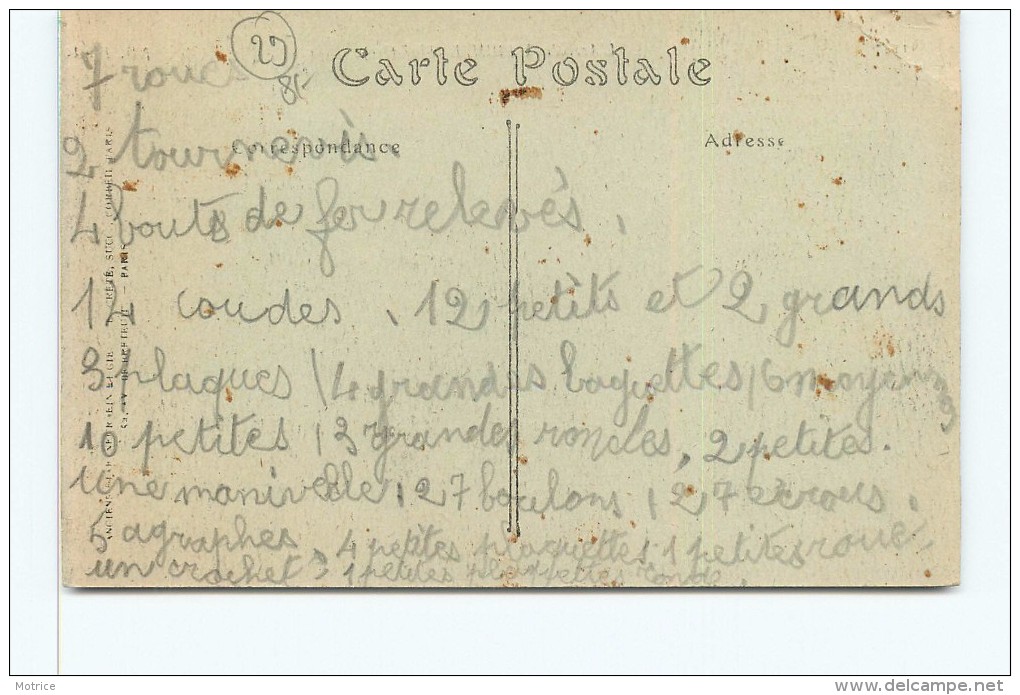 29
8f-
Carte Postale
7 roues
Correspondance
Adresse
2 tournevis.
4 bouts de fer relevés,
14 coudes, 12 petits et 2 grands
3 plaques, 4 grandes baguettes, 6 moyennes
10 petites, 3 grandes rondes, 2 petites.
une manivelle, 27 boulons, 27 écrous,
5 agraphes, 4 petites plaquettes, 1 petites roue
un crochet, 1 petites plaquette ronde,
PARIS
Motrice
www.delcampe.net